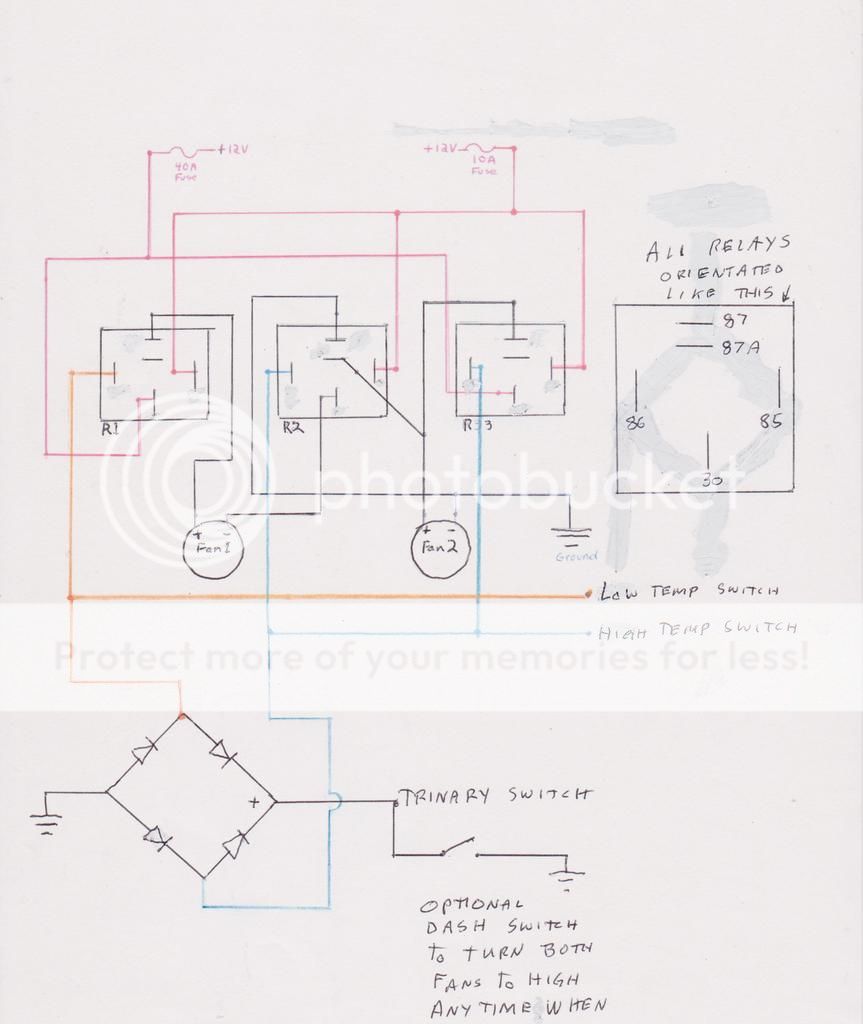 +12V
40A
Fuse
+12V
10A
Fuse
ALL RELAYS
ORIENTATED
LIKE THIS
87
87A
86
85
30
R1
R2
R3
photobucket
+ -
Fan1
+ -
Fan2
Ground
LOW TEMP SWITCH
HIGH TEMP SWITCH
Protect more of your memories for less!
+
TRINARY SWITCH
OPTIONAL
DASH SWITCH
TO TURN BOTH
FANS TO HIGH
ANYTIME WHEN